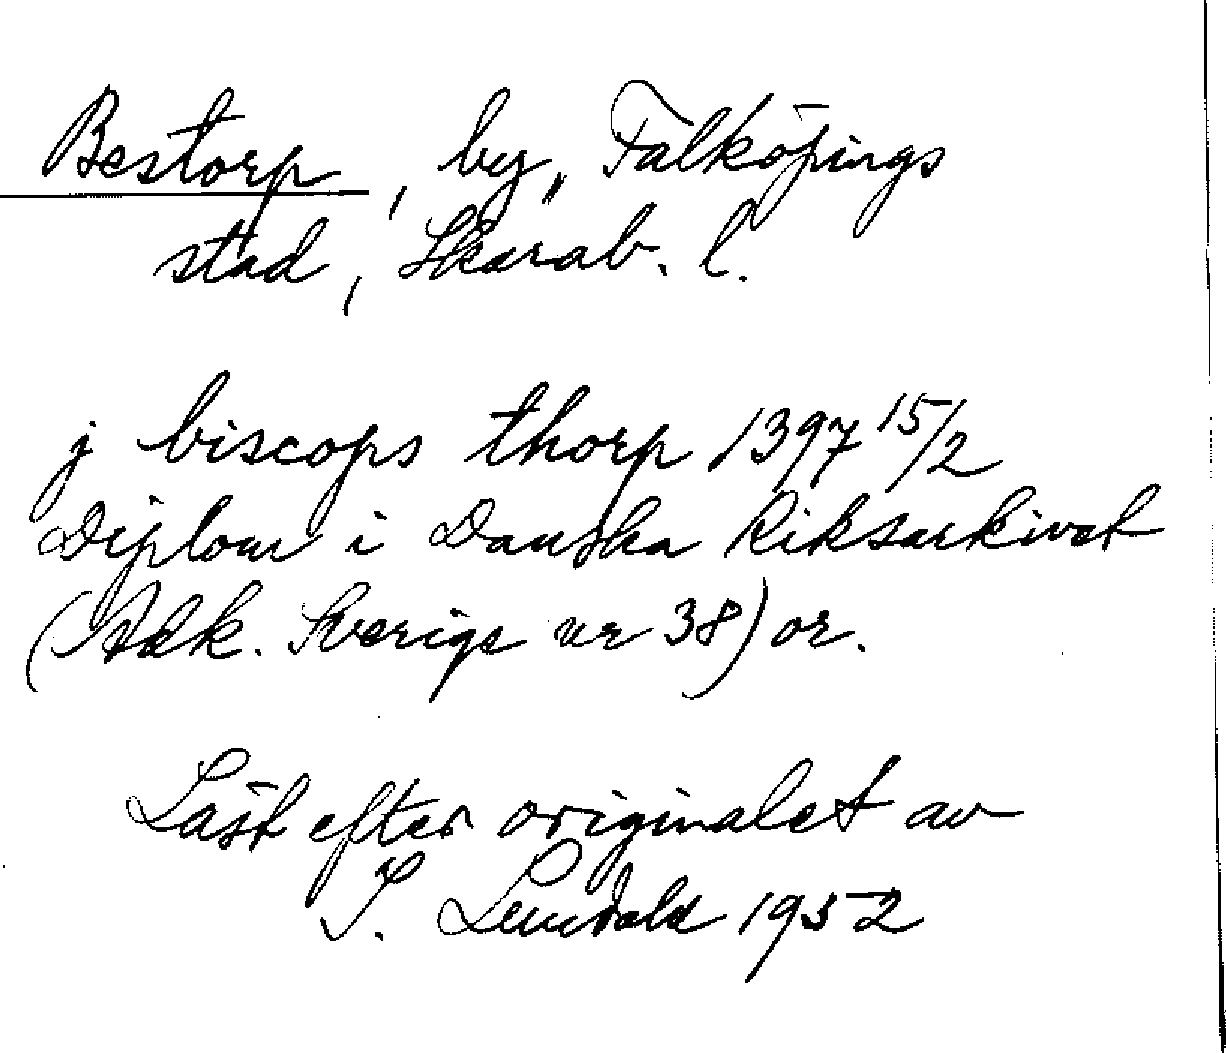 Bestorp, by, Falköpings
stad, Skarab. l.
j biscops thorp 1397 15/2
Diplom i Danska Riksarkivet
(Adk. Sverige nr 38) or.
Läst efter originalet av
I. Lundahl 1952